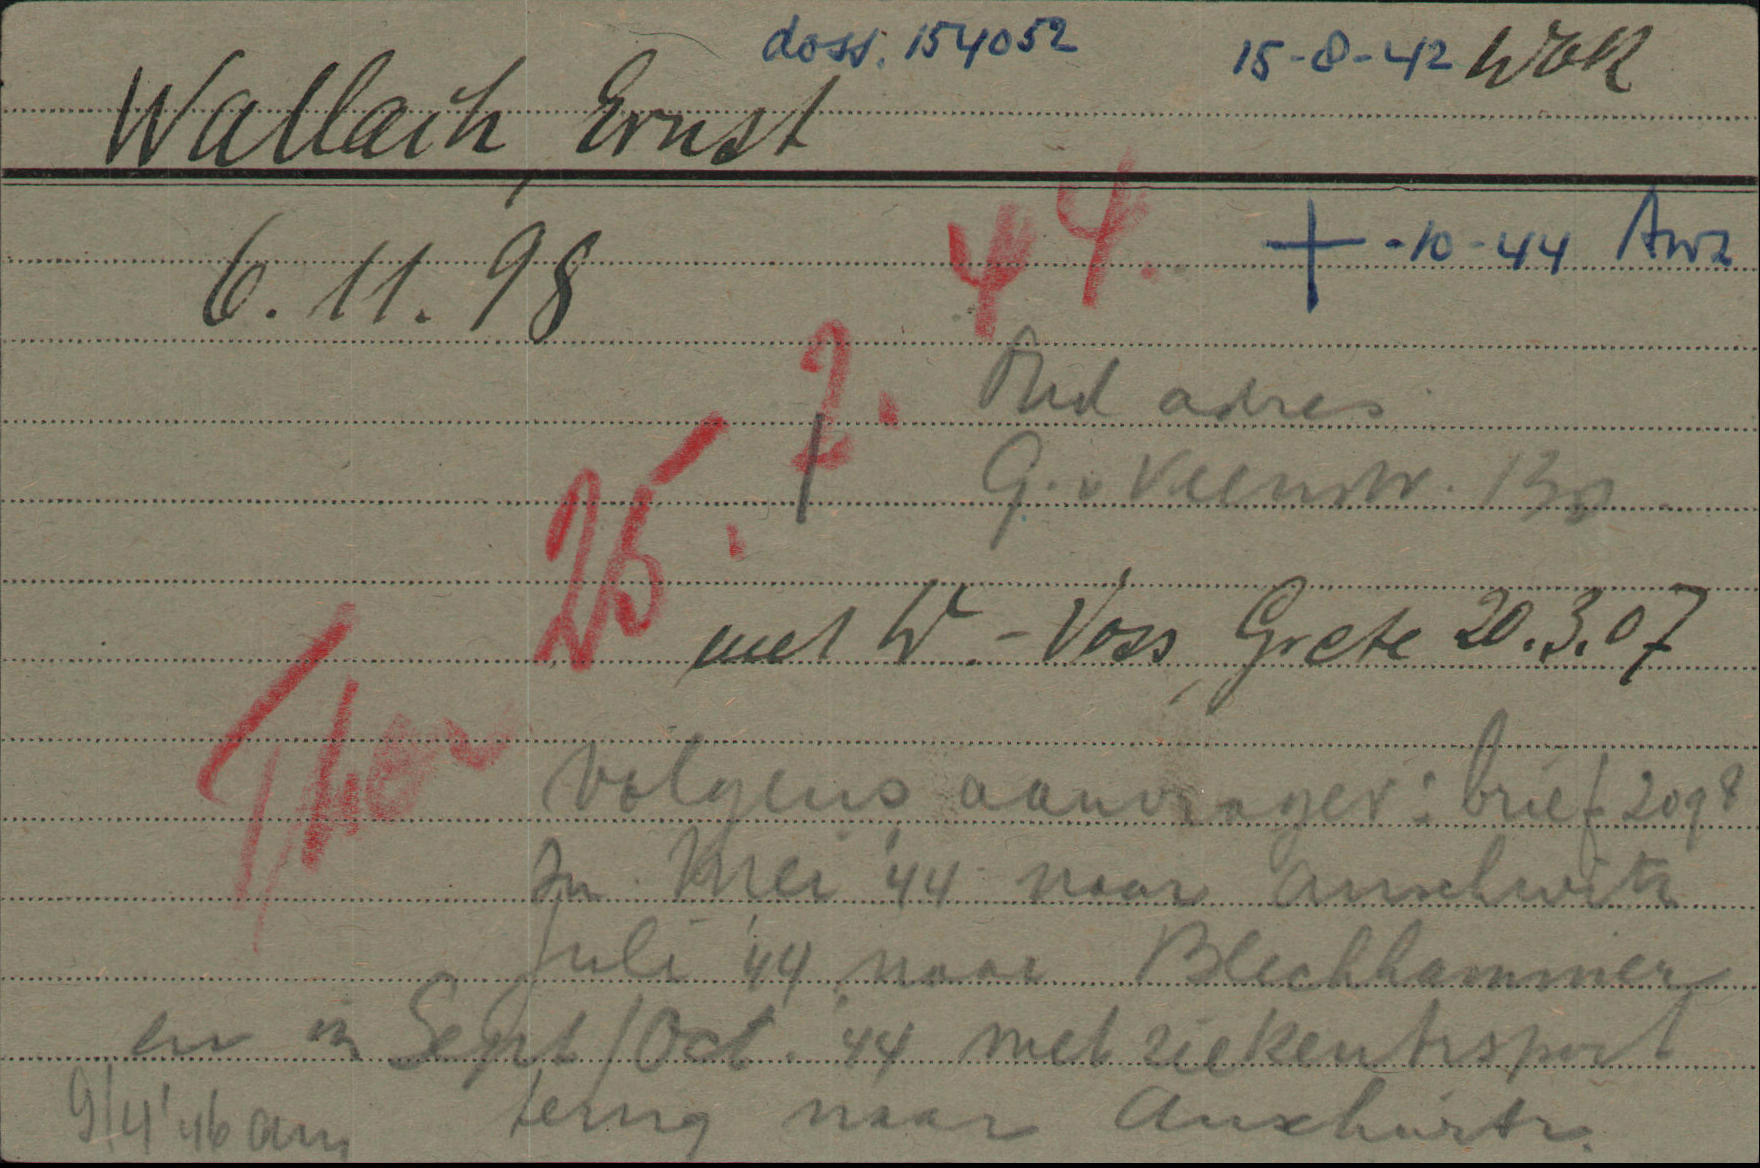 doss. 154052
15-8-42 WBK
Wallach, Ernst
6.11.98
+ -10-44 Awz
25.2.44.
Ther
Oud adres
G. v Veenstr. 138
met W.-Voss, Grete 20.3.07
volgens aanvrager: brief 2098
In Mei '44 naar Auschwitz
Juli '44 naar Blechhammer
en in Sept/Oct. '44 met ziekentrsport
terug naar Auschwitz.
9/4 '46 am